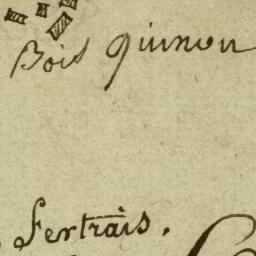 Bois quinou
Fertrais.